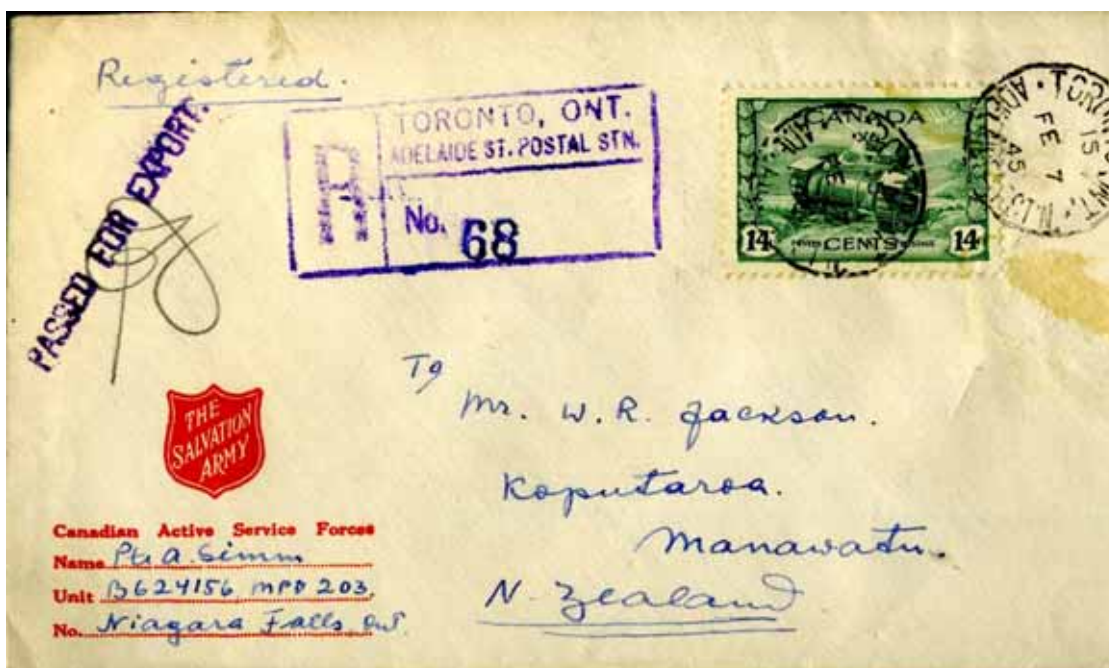 Registered.
PASSED FOR EXPORT.
R
TORONTO, ONT.
ADELAIDE ST. POSTAL STN.
No. 68
CANADA
14 CENTS 14
TORONTO, ONT.
15
FE 7
45
To
Mr. W. R. Jackson.
Koputaroa.
Manawatu.
N. Zealand
THE
SALVATION
ARMY
Canadian Active Service Forces
Name Pte A. Simm
Unit B624156, MPD 203,
No. Niagara Falls, Ont.